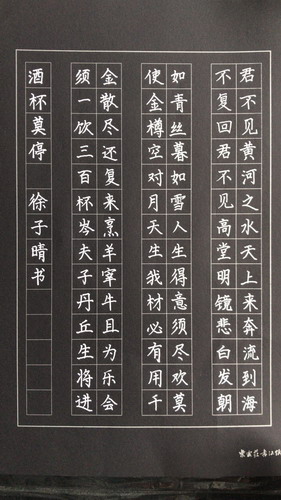 君不见黄河之水天上来奔流到海
不复回君不见高堂明镜悲白发朝
如青丝暮如雪人生得意须尽欢莫
使金樽空对月天生我材必有用千
金散尽还复来烹羊宰牛且为乐会
须一饮三百杯岑夫子丹丘生将进
酒杯莫停 徐子晴书